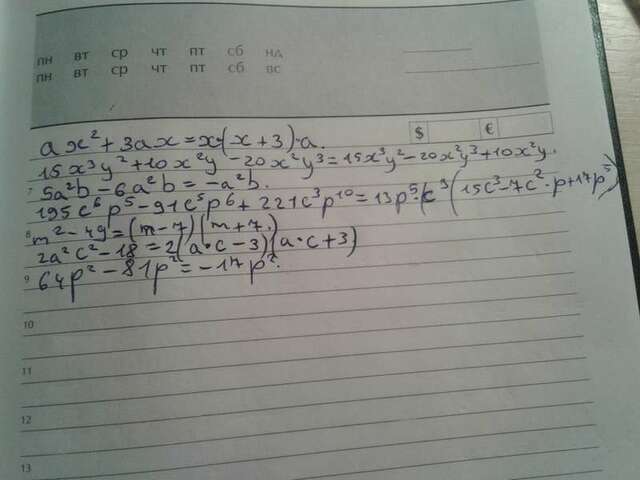 пн вт ср чт пт сб нд
пн вт ср чт пт сб вс
$ €
ax² + 3ax = x·(x + 3)·a.
15x³y² + 10x²y - 20x²y³ = 15x³y² - 20x²y³ + 10x²y.
7
5a²b - 6a²b = -a²b.
195c⁶p⁵ - 91c⁵p⁶ + 221c³p¹⁰ = 13p⁵·c³(15c³ - 7c²·p + 17p⁵)
8
m² - 49 = (m - 7)(m + 7)
2a²c² - 18 = 2(a·c - 3)(a·c + 3)
9
64p² - 81p² = -17p².
10
11
12
13